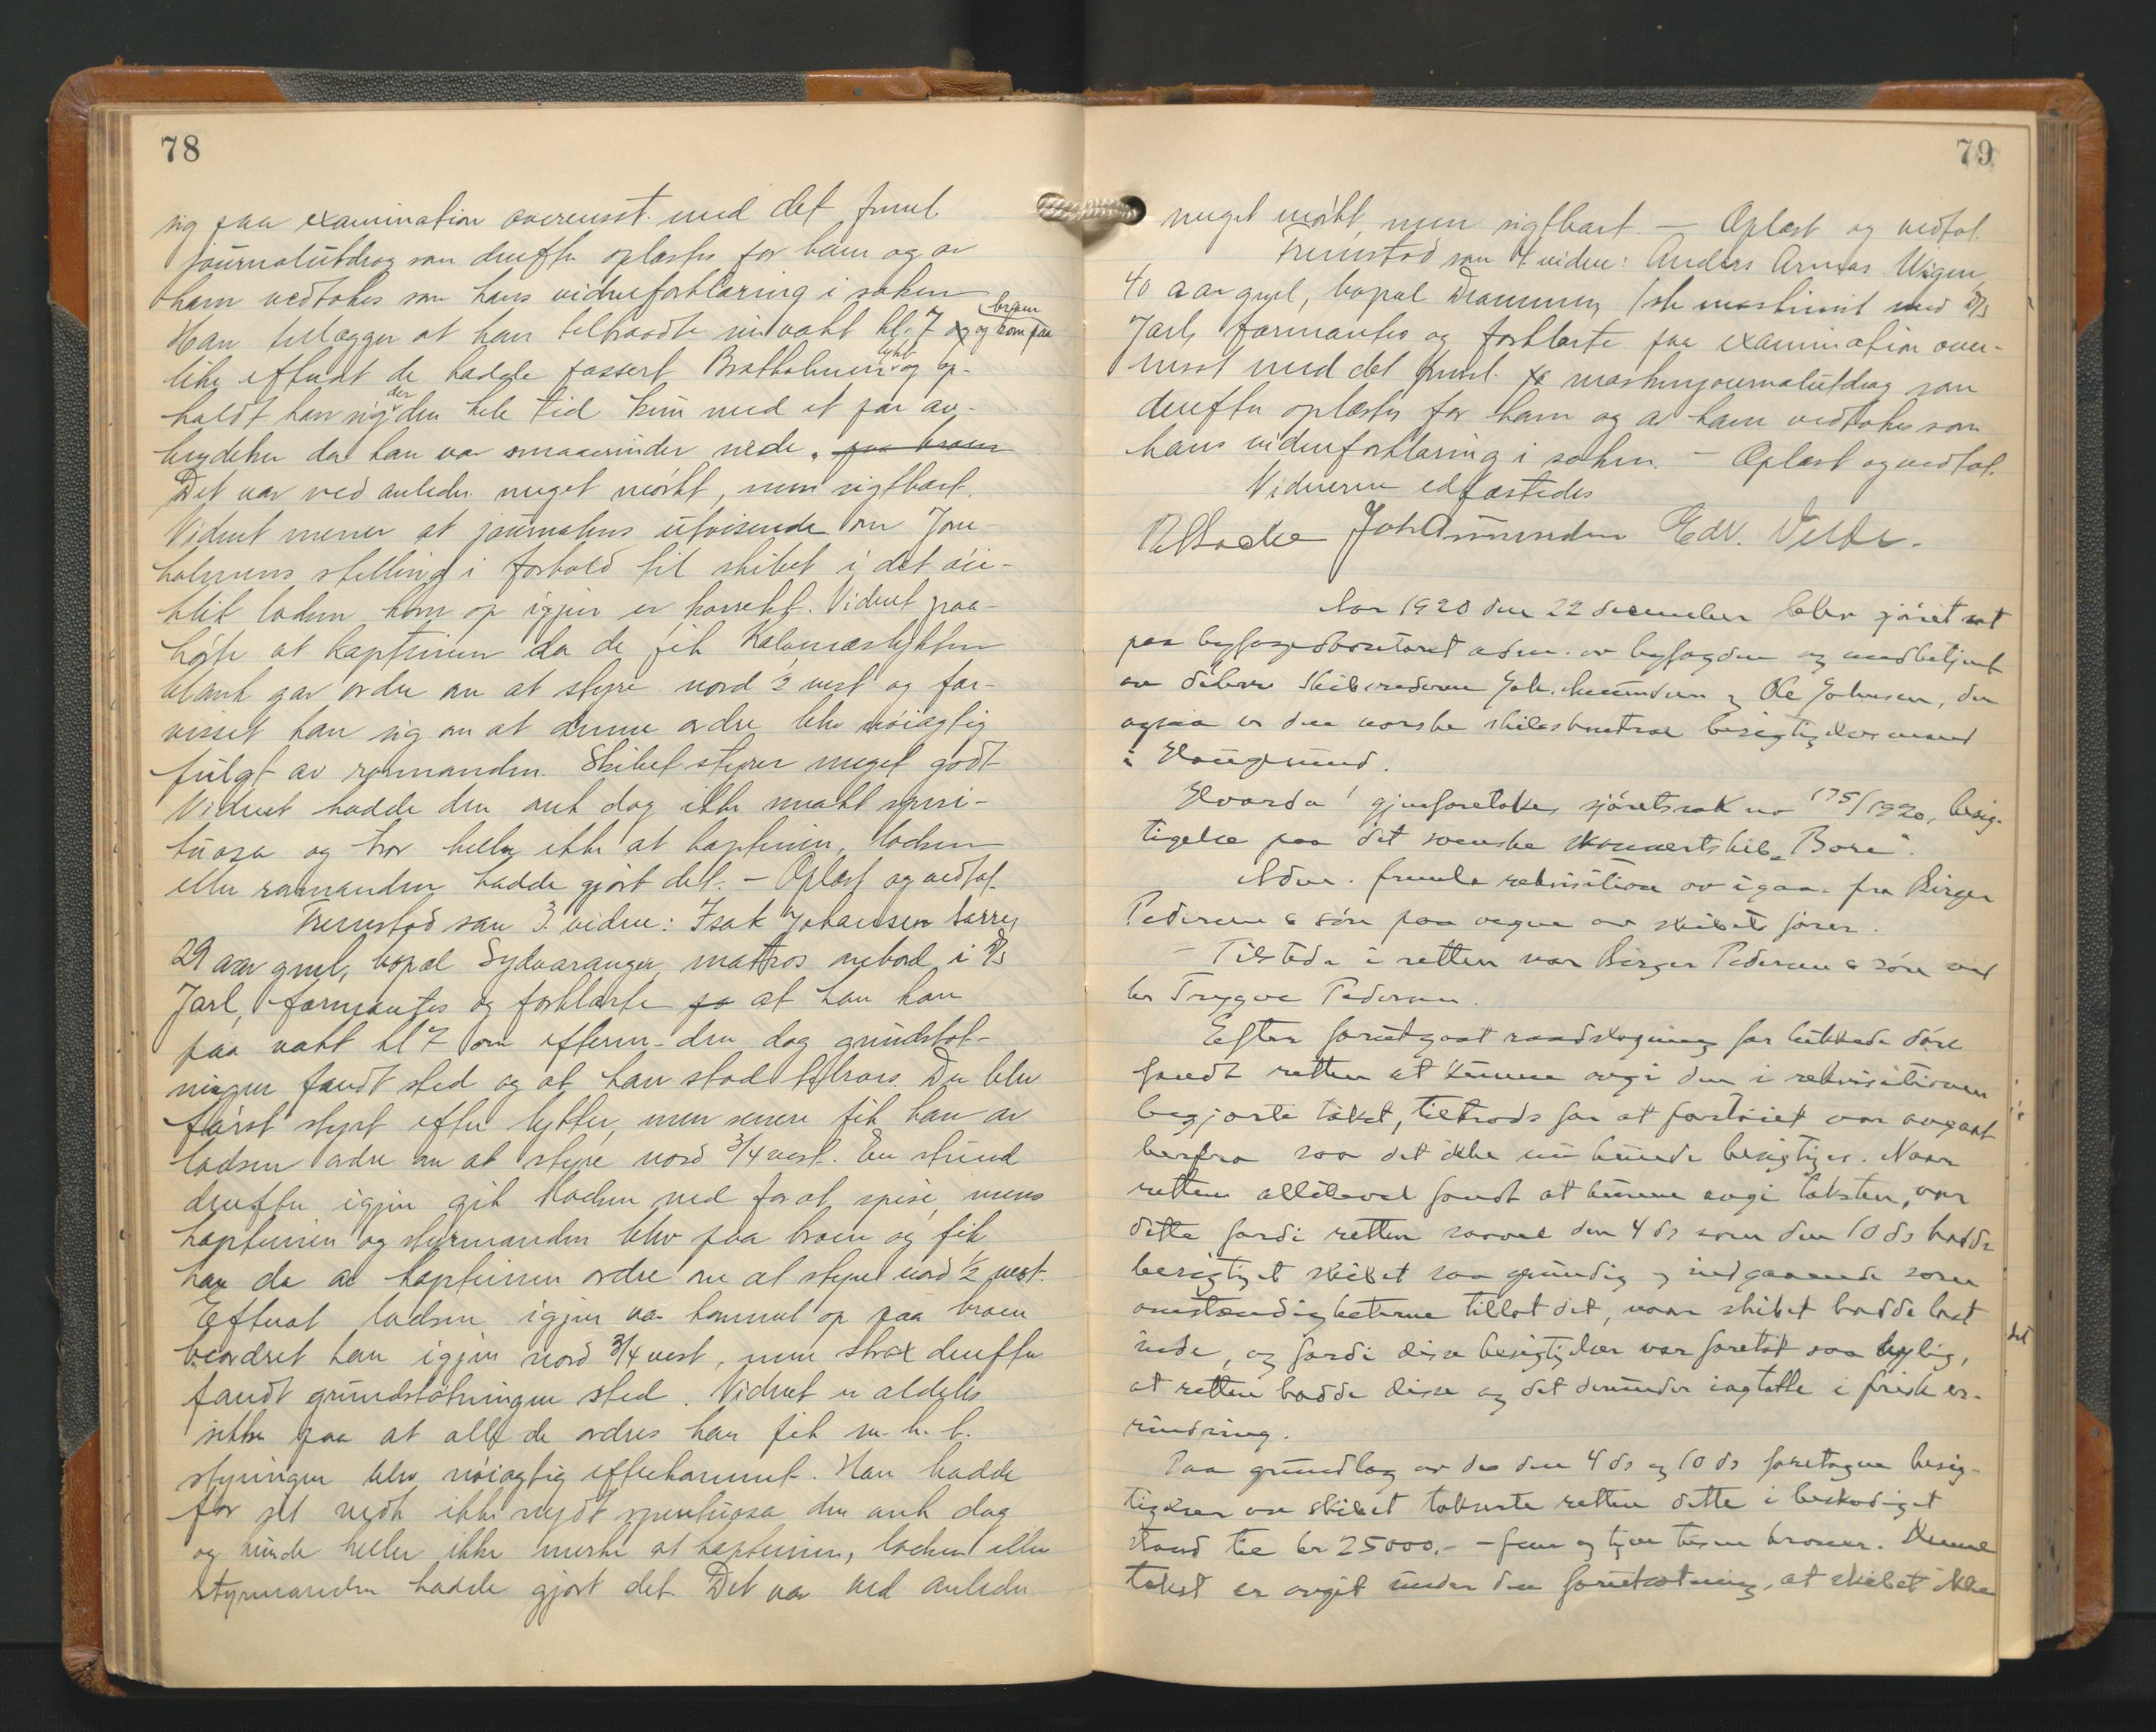 78
sig paa examination overensst. med det freml.
journalutdrag som derefter oplæstes for ham og av
ham vedtokes som hans vidneforklaring i saken
Han tillægger at han tiltraadte sin vakt kl. 7 og kom paa broen
like efterat de hadde passert Bratholmen lykt og op-
holdt han sig der den hele tid kun med et par av-
brydelser da han var smaaerinder nede. paa broen
Det var ved anledn. meget mørkt, men sigtbart.
Vidnet mener at journalens utvisende om
holmens stilling i forhold til skibet i det øie-
blik lodsen kom op igjen er korrekt. Vidnet paa-
hørte at kapteinen da de fik lykten
blank gav ordre om at styre nord ½ vest og for-
visset han sig om at denne ordre blev nøiagtig
fulgt av rormanden. Skibet styrer meget godt
Vidnet hadde den omh dag ikke smakt spiri-
tuosa og tror heller ikke at kapteinen, lodsen
eller rormanden hadde gjort det. – Oplæst og vedtat.
Fremstod som 3. vidne: Isak Johansen
29 aar gml, bopæl Sydvaranger, matros ombord i D/s
Jarl, formantes og forklarte at han kom
paa vakt kl 7 om efterm. den dag grundstøt-
ningen fandt sted og at han stod tilrors. Der blev
først styrt efter lykter, men senere fik han av
lodsen ordre om at styre nord ¾ vest. En stund
derefter igjen gik lodsen ned for at spise, mens
kapteinen og styrmanden blev paa broen og fik
han da av kapteinen ordre om at styre nord ½ vest.
Efterat lodsen igjen var kommet op paa broen
beordret han igjen nord ¾ vest, men strax derefter
fandt grundstøtningen sted. Vidnet er aldeles
sikker paa at alle de ordres han fik m. h. t.
styringen blev nøiagtig efterkommet. Han hadde
for sit vedk ikke nydt spirituosa den omh dag
og kunde heller ikke merke at kapteinen, lodsen eller
styrmanden hadde gjort det. Det var ved anledn
79
meget mørkt, men sigtbart. – Oplæst og vedtat.
Fremstod som 4 vidne: Anders Wigen,
40 aar gml, bopæl Drammen, 1ste maskinist med D/s
Jarl, formantes og forklarte paa examination over-
ensst med det freml. maskinjournalutdrag som
derefter oplæstes for ham og av ham vedtokes som
hans vidneforklaring i saken. – Oplæst og vedtat.
Vidnerne edfæstedes
Joh Amundsen Edv. Velde.
Aar 1920 den 22 december blev sjøret sat
paa byfogedkontoret adm. av byfogden og medbetjent
av skibsrederne Joh. Amundsen og Ole Johnsen, der
ogsaa er den norske skibskontrol besigtigelsesmænd
i Haugesund.
Hvorda! gjenforetokes sjøretssak no 175/1920, besig-
tigelse paa det svenske skonnertskib "Bore".
Adm. fremla rekvisition av igaar fra Birger
Pedersen & søn paa vegne av skibets fører.
– Tilstede i retten var Birger Pedersen & søn ved
hr Trygve Pedersen.
Efter forutgaat raadslagning for lukkede døre
fandt retten at kunne avgi den i rekvisitionen
begjærte takst, tiltrods for at fartøiet var avgaat
herfra saa det ikke nu kunde besigtiges. Naar
retten allikevel fandt at kunne avgi taksten, var
dette fordi retten saavel den 4 ds som den 10 ds hadde
besigtiget skibet saa grundig og indgaaende som
omstændigheterne tillot det, naar skibet hadde last
inde, og fordi disse besigtigelser var foretat saa nylig,
at retten hadde disse og det derunder iagttatte i frisk er-
indring.
Paa grundlag av de den 4 ds og 10 ds foretagne besig-
tigelser av skibet takserte retten dette i beskadiget
stand til kr 25000.- - fem og tyve tusen kroner. Denne
takst er avgit under den forutsætning, at skibet ikke
det